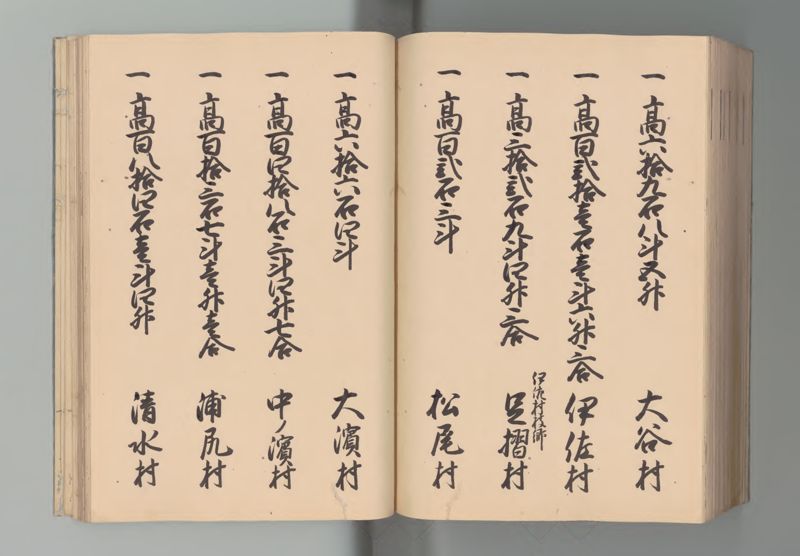 一高六拾九石八斗五升 大谷村
一高百弐拾壱石壱斗六升二合 伊佐村
一高三拾弐石九斗四升二合 足摺村
伊佐村枝郷
一高百弐石三斗 松尾村
一高六拾六石四斗 大濱村
一高百四拾八石三斗四升七合 中ノ濱村
一高百拾三石七斗壱升壱合 浦尻村
一高百八拾四石壱斗四升 清水村